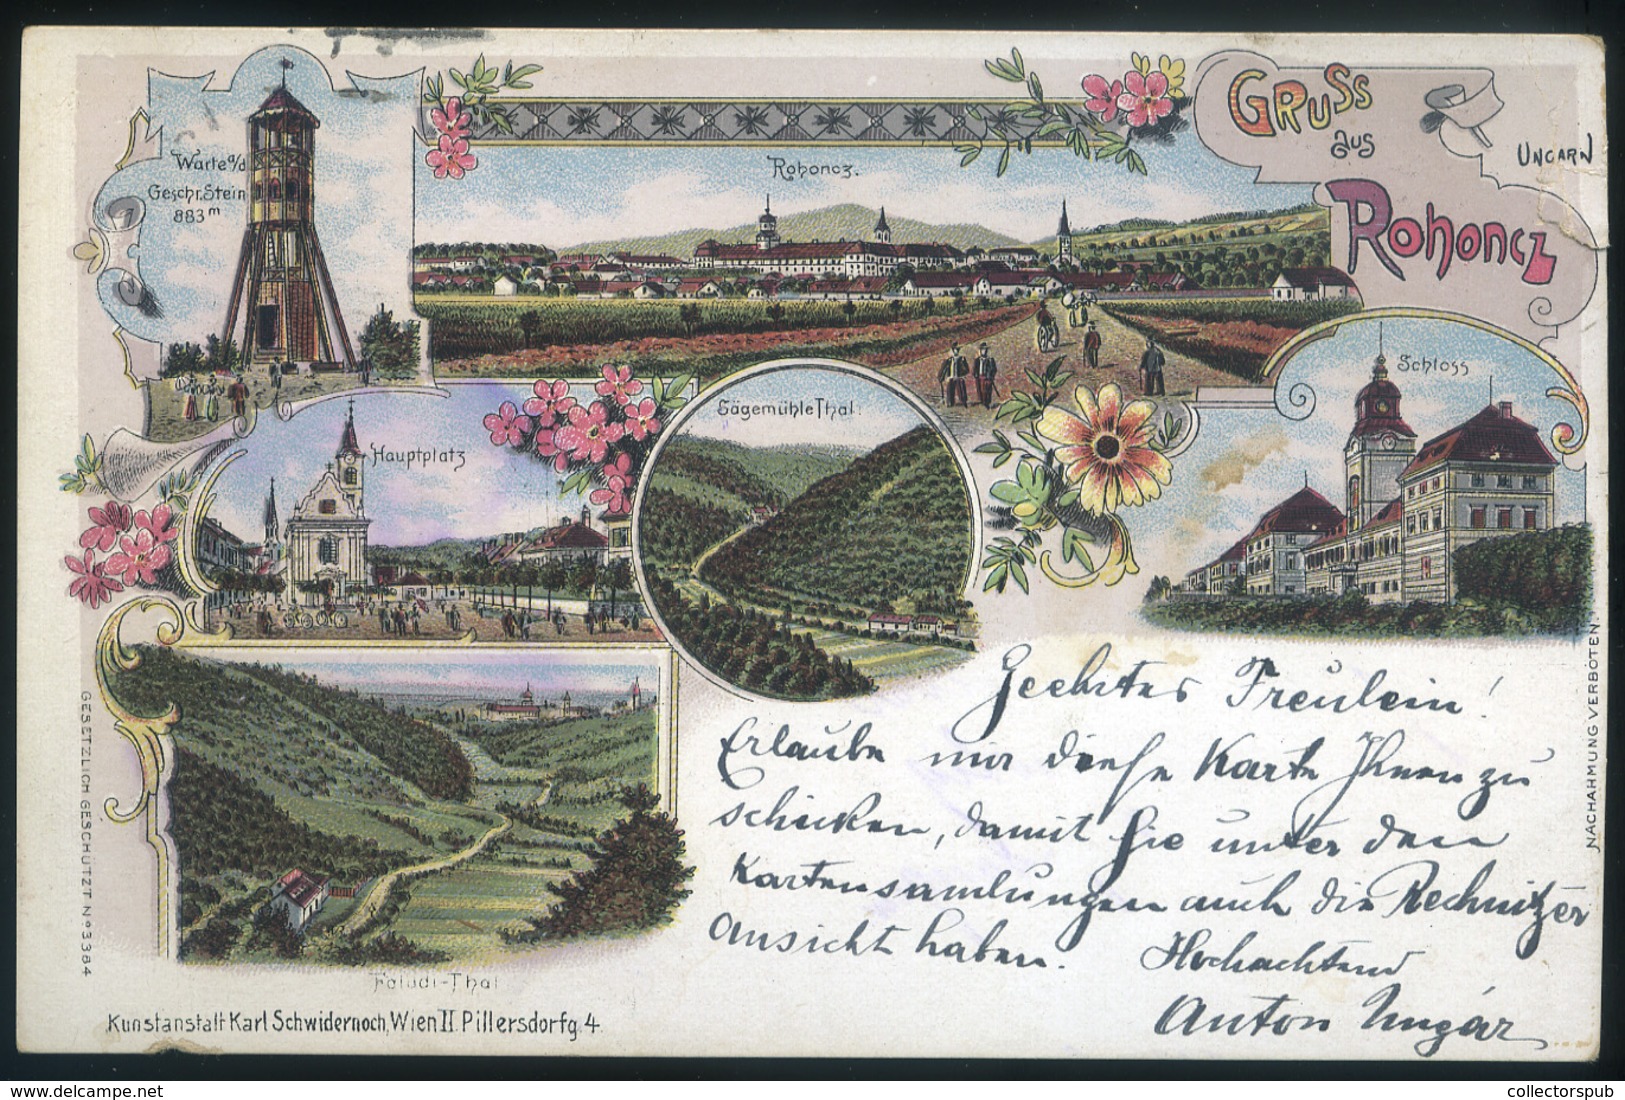 GRUSS
aus
ROHONCZ
UNGARN
Warte a/d
Geschr. Stein
883 m
Rohoncz.
Schloss
Sägemühle Thal.
Hauptplatz
Faludi-Thal
Geehrtes Freulein!
Erlaube mir diese Karte Ihnen zu
schicken, damit Sie unter den
Kartensamlungen auch die Rechnitzer
Ansicht haben. Hochachtend
Anton Ungár
GESETZLICH GESCHÜTZT Nº 3384
NACHAHMUNG VERBOTEN.
Kunstanstalt Karl Schwidernoch, Wien II. Pillersdorfg. 4.
collectorspub